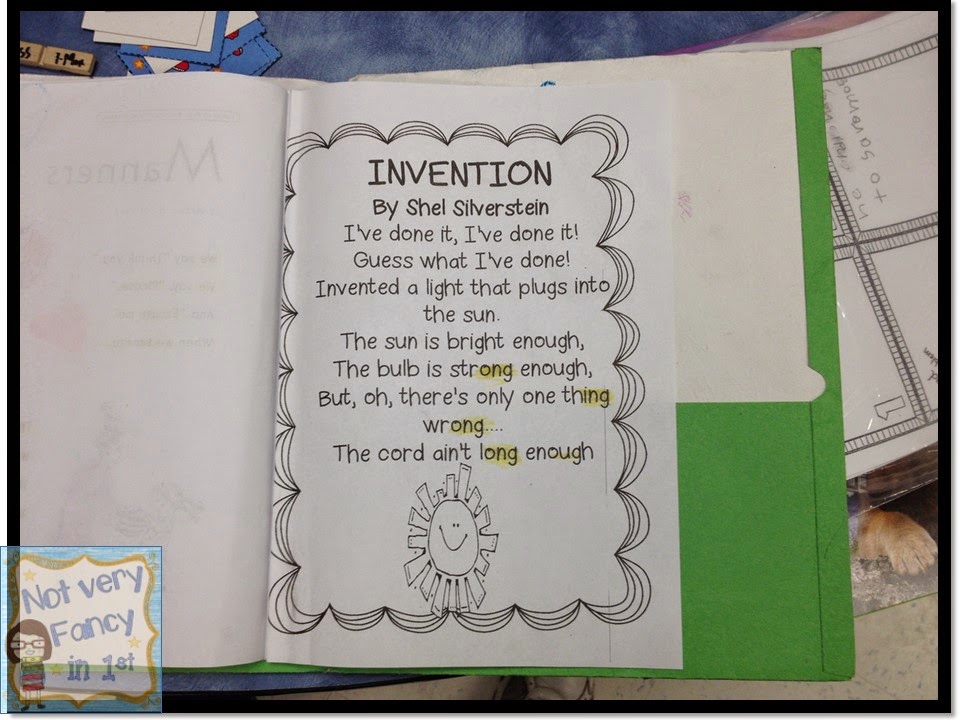 INVENTION
By Shel Silverstein
I've done it, I've done it!
Guess what I've done!
Invented a light that plugs into
the sun.
The sun is bright enough,
The bulb is strong enough,
But, oh, there's only one thing
wrong....
The cord ain't long enough
Manners
We say "Thank you."
We say, "Please."
And "Excuse me"
to
he
Not very
Fancy
in 1st